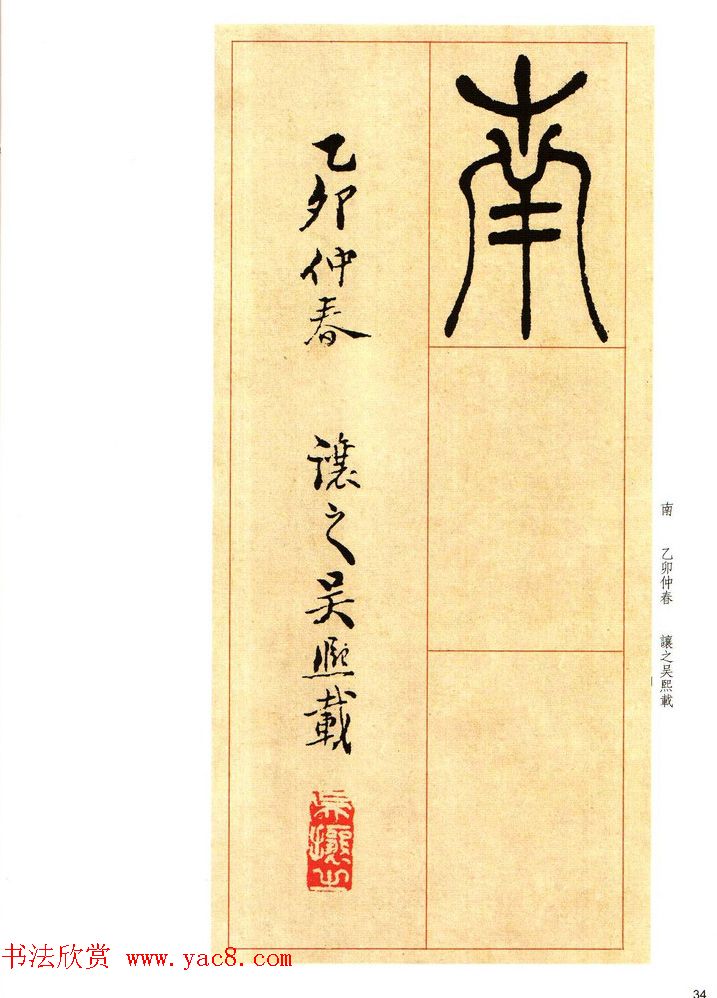 南
乙卯仲春 讓之吳熙載
吳讓之
南 乙卯仲春 讓之吳熙載
书法欣赏 www.yac8.com
34